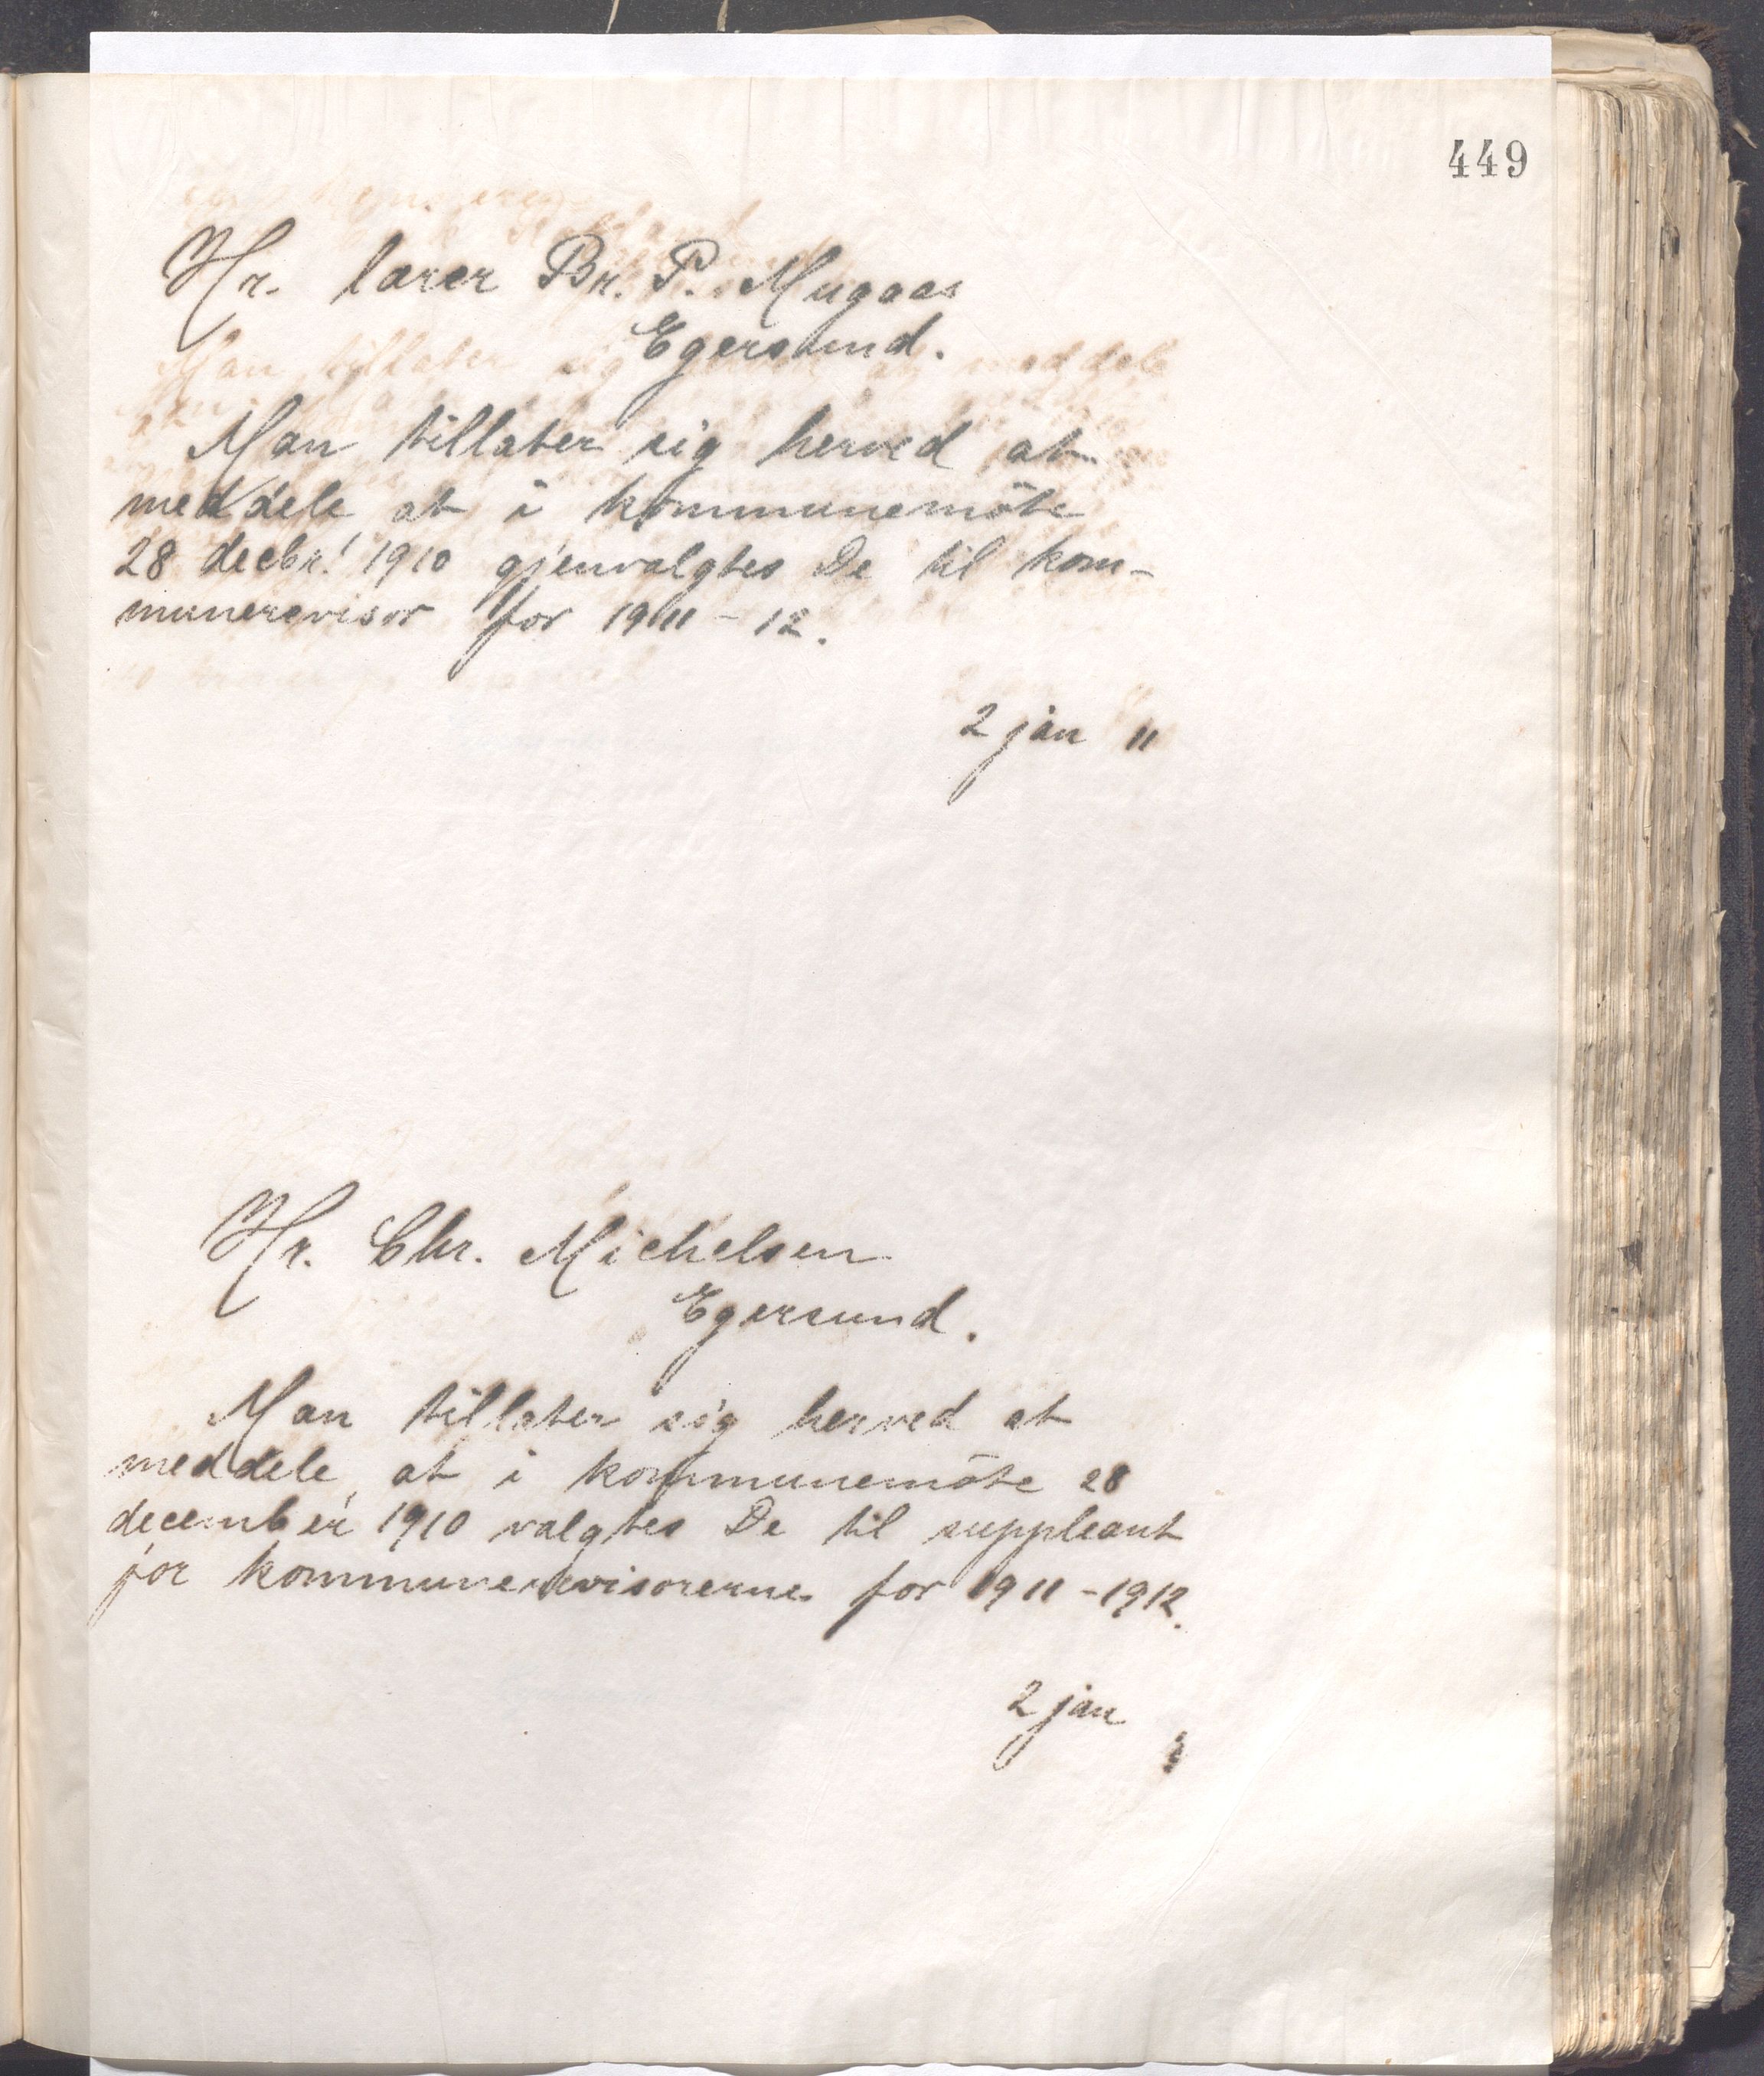 449
Hr. lærer Br. P. Mugaas
Egersund.
Man tillater sig herved at
meddele at i kommunemöte
28 decbr. 1910 gjenvalgtes De til kom-
munerevisor for 1911 - 12.
2 jan 11
Hr. Chr. Michelsen
Egersund.
Man tillater sig herved at
meddele, at i kommunemöte 28
december 1910 valgtes De til suppleant
for kommunerevisorerne for 1911 - 1912.
2 jan